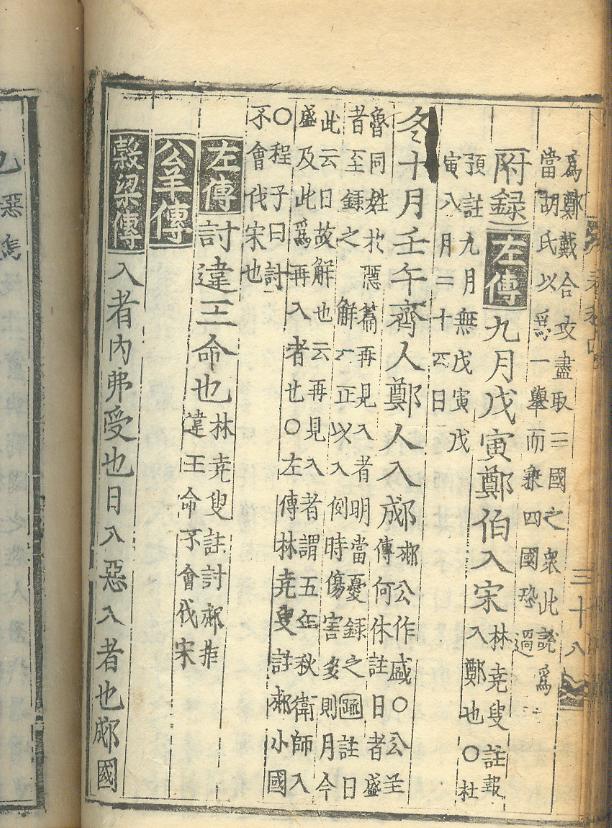 為鄭戴合攻盡取三國之衆此說為
當胡氏以為一舉而兼四國恐過
附錄 左傳 九月戊寅鄭伯入宋 林堯叟註報
入鄭也〇杜
預註九月無戊寅戊
寅八月二十四日
冬十月壬午齊人鄭人入郕 郕公作盛〇公羊
傳何休註日者盛
魯同姓於隱篇再見入者明當憂錄之 疏 註日
者至錄之 解一正以入例時傷害多則月今
此云日故解也云再見入者謂五年秋衛師入
盛及此為再入者也〇左傳林堯叟註郕小國
〇程子曰討
不會伐宋也
左傳 討違王命也 林堯叟註討郕
違王命不會伐宋
公羊傳
穀梁傳 入者內弗受也日入惡入者也郕國
三十八
惡焉